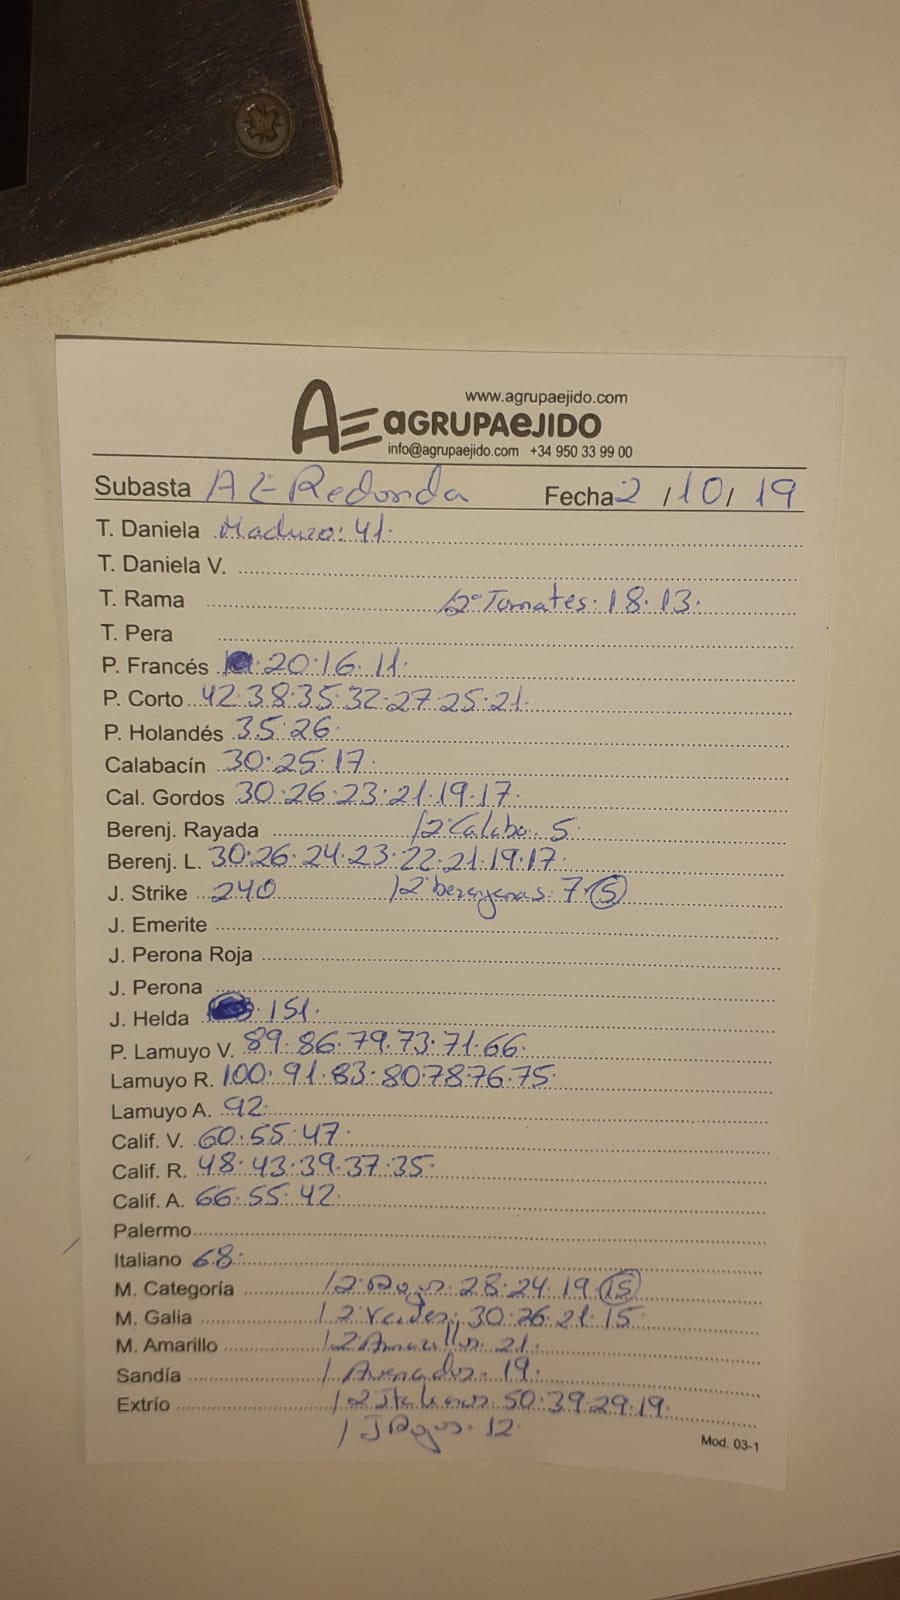 www.agrupaejido.com
AE AGRUPAEJIDO
info@agrupaejido.com +34 950 33 99 00
Subasta AE Redonda Fecha 2 / 10 / 19
T. Daniela Maduro: 41.
T. Daniela V.
T. Rama /2ª Tomates. 18.13.
T. Pera
P. Francés 20.16.11.
P. Corto 42.38.35.32.27.25.21.
P. Holandés 35.26.
Calabacín 30.25.17.
Cal. Gordos 30.26.23.21.19.17.
Berenj. Rayada /2 Calaba. 5.
Berenj. L. 30.26.24.23.22.21.19.17.
J. Strike 240 /2 berenjenas. 7.(5)
J. Emerite
J. Perona Roja
J. Perona
J. Helda 151.
P. Lamuyo V. 89.86.79.73.71.66.
Lamuyo R. 100.91.83.80.78.76.75.
Lamuyo A. 92.
Calif. V. 60.55.47.
Calif. R. 48.43.39.37.35.
Calif. A. 66.55.42.
Palermo
Italiano 68.
M. Categoría /2 Rojos. 28.24.19.(15)
M. Galia /2 Verdes. 30.26.21.15
M. Amarillo /2 Amarillos. 21.
Sandía 19.
Extrío /2 Italianos. 50.39.29.19.
/ J Rojos. 12.
Mod. 03-1